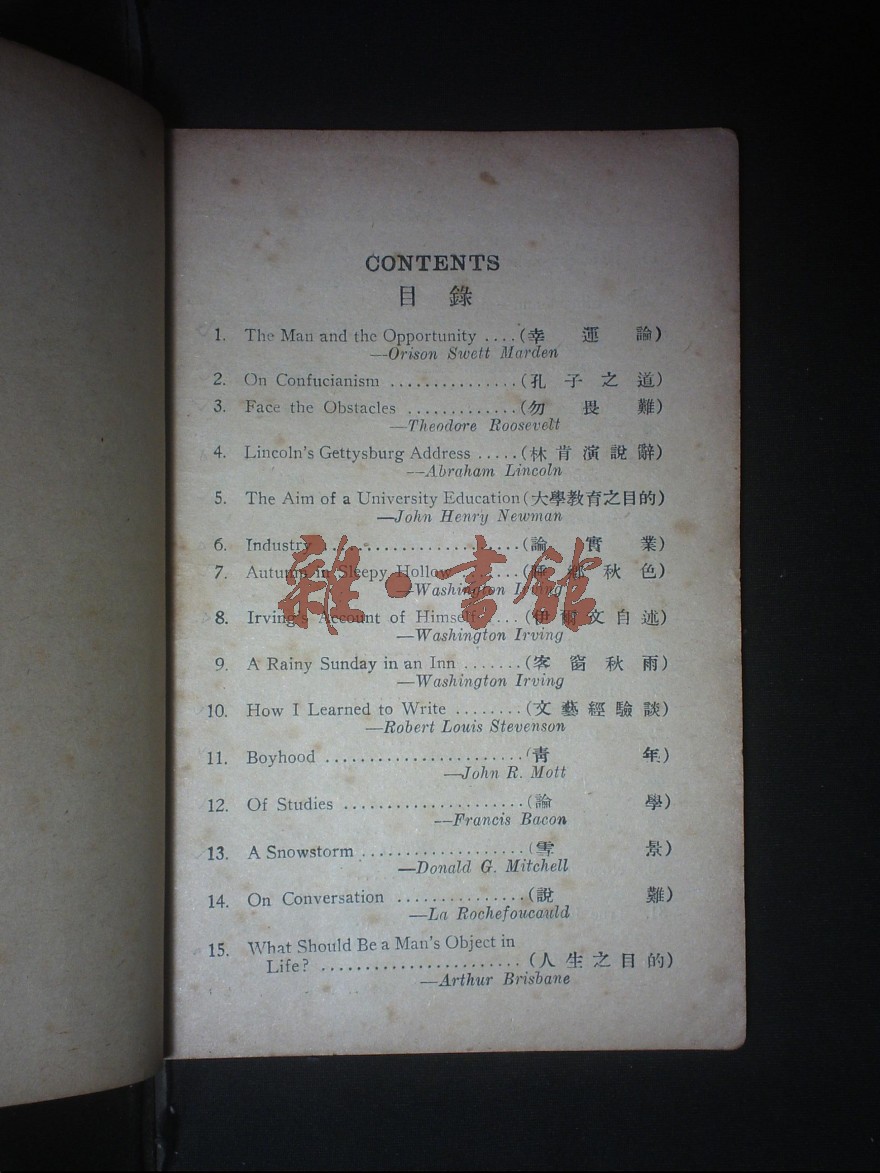 CONTENTS
目錄
1. The Man and the Opportunity ....(幸運論)
—Orison Swett Marden
2. On Confucianism ...............(孔子之道)
3. Face the Obstacles .............(勿畏難)
—Theodore Roosevelt
4. Lincoln's Gettysburg Address .....(林肯演說辭)
—Abraham Lincoln
5. The Aim of a University Education(大學教育之目的)
—John Henry Newman
6. Industry ........................(論實業)
7. Autumn in Sleepy Hollow ........(睡鄉秋色)
—Washington Irving
8. Irving's Account of Himself ....(伊爾文自述)
—Washington Irving
9. A Rainy Sunday in an Inn .......(客窗秋雨)
—Washington Irving
10. How I Learned to Write ........(文藝經驗談)
—Robert Louis Stevenson
11. Boyhood .......................(青年)
—John R. Mott
12. Of Studies .....................(論學)
—Francis Bacon
13. A Snowstorm ...................(雪景)
—Donald G. Mitchell
14. On Conversation ...............(說難)
—La Rochefoucauld
15. What Should Be a Man's Object in
Life? .......................(人生之目的)
—Arthur Brisbane
雜·書館